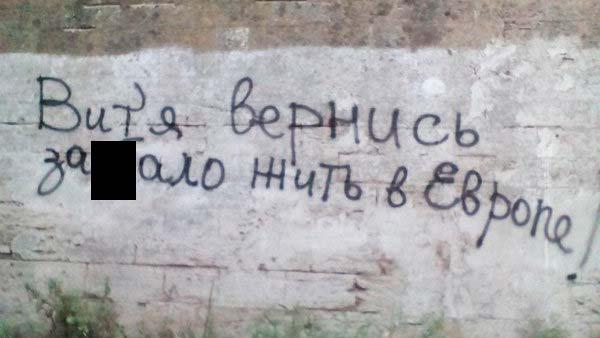 Витя вернись
за ало жить в Европе!